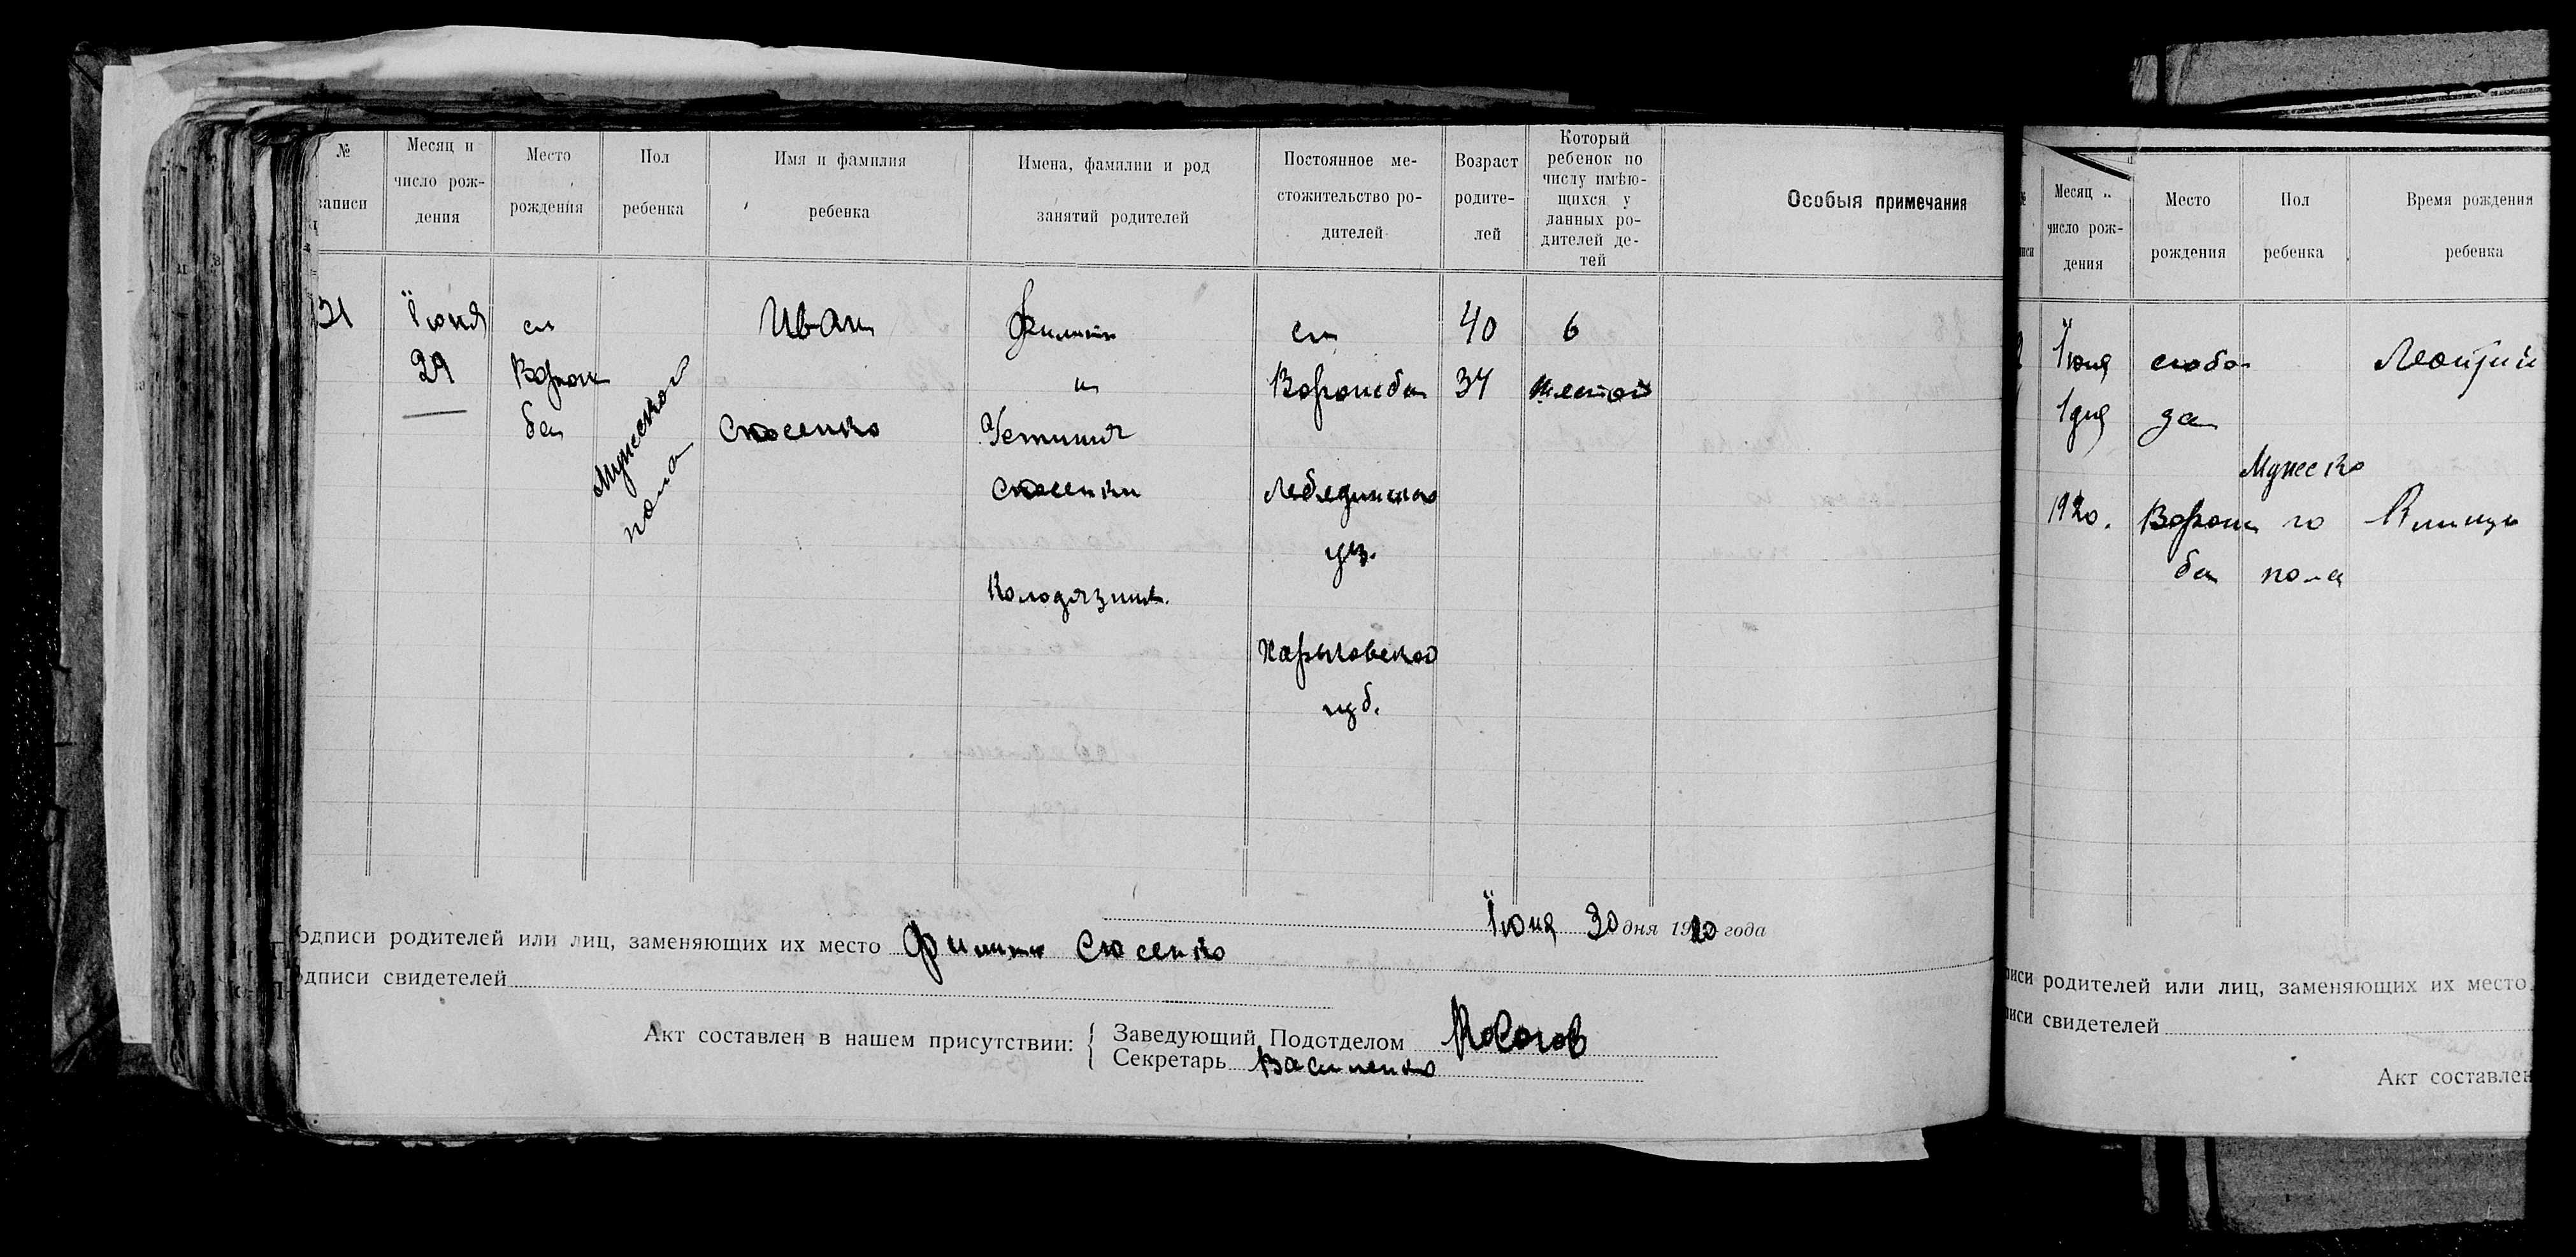 №
записи
Месяц и
число рож-
дения
Место
рождения
Пол
ребенка
Имя и фамилия
ребенка
Имена, фамилии и род
занятий родителей
Постоянное ме-
стожительство ро-
дителей
Возраст
родите-
лей
Который
ребенок по
числу имѣю-
щихся у
данных ро-
дителей де-
тей
Особыя примечания
31
Июня
29
сл
Ворож
ба
Мужеского
пола
Иван
Сюсенко
Филипп
и
Устиния
Сюсенки
сл
Ворожба
Лебединско
уз.
Харьковской
губ.
40
37
6
шестой
Июня 30 дня 1920 года
одписи родителей или лиц, заменяющих их место Филипп Сюсенко
одписи свидетелей
Акт составлен в нашем присутствии:
Заведующий Подотделом
Секретарь Василенко
Месяц и
число рож-
дения
Место
рождения
Пол
ребенка
Время рождения
ребенка
1 дня
1920.
слобо
да
Ворож
ба
Мужеско
го
пола
писи родителей или лиц, заменяющих их место
писи свидетелей
Акт составлен